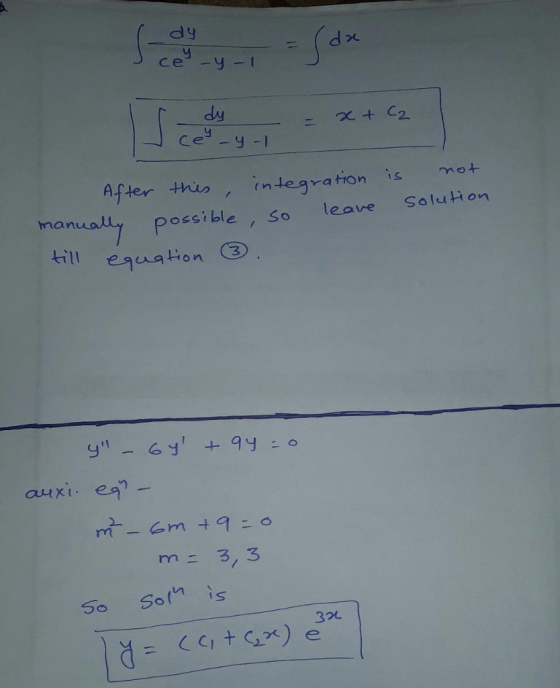 ∫ dy / (ce^y - y - 1) = ∫ dx
∫ dy / (ce^y - y - 1) = x + c₂
After this, integration is not
manually possible, so leave solution
till equation ③.
y'' - 6y' + 9y = 0
auxi. eqⁿ -
m² - 6m + 9 = 0
m = 3, 3
So solⁿ is
y = (c₁ + c₂x) e^3x